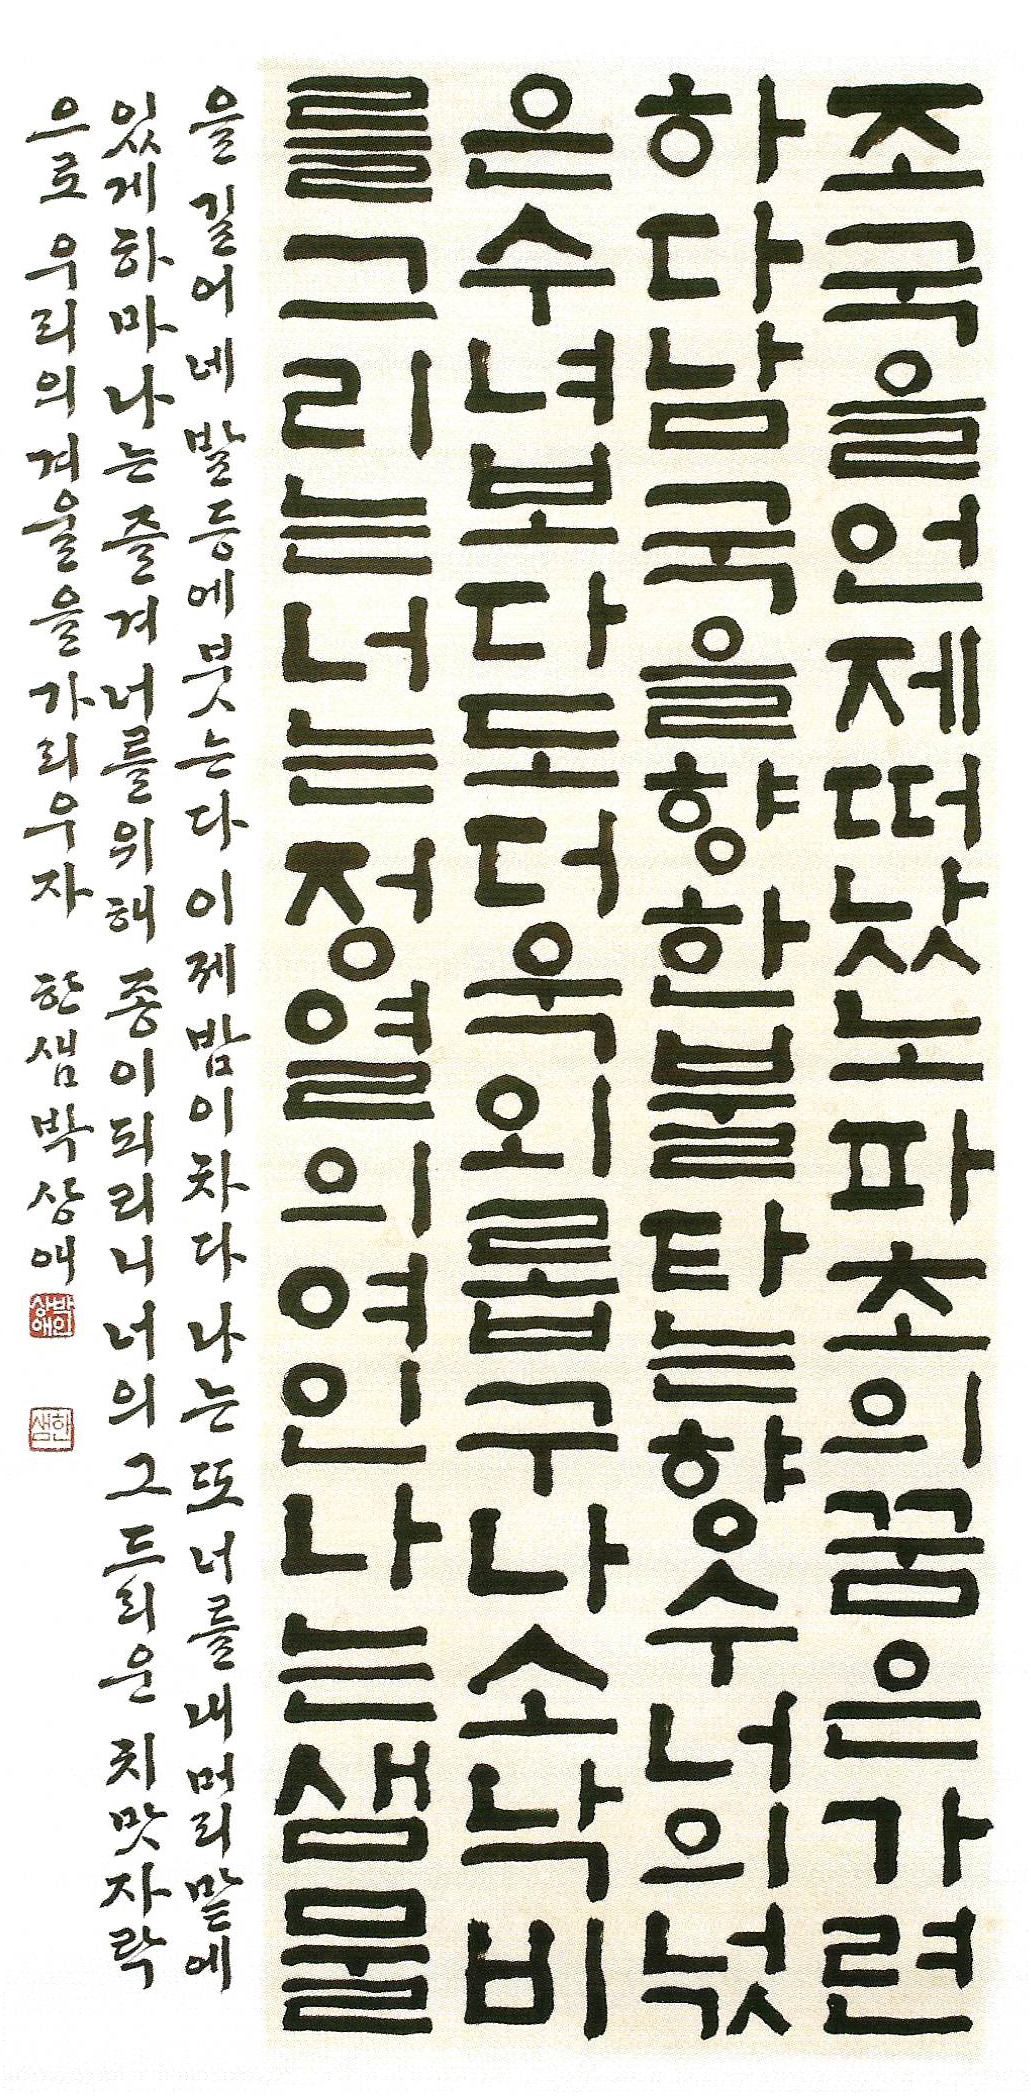 조국을언제떠났노파초의꿈은가련
하다남국을향한불타는향수너의넋
은수녀보다도더욱외롭구나소낙비
를그리는너는정열의여인나는샘물
을 길어 네 발등에 붓는다 이제 밤이 차다 나는 또 너를 내 머리맡에
있게 하마 나는 즐겨 너를 위해 종이 되리니 너의 그 드리운 치맛자락
으로 우리의 겨울을 가리우자 한샘 박상애
박상애인
한샘